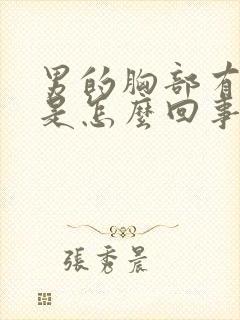 男的胸部有
是怎麼回事
張秀晨